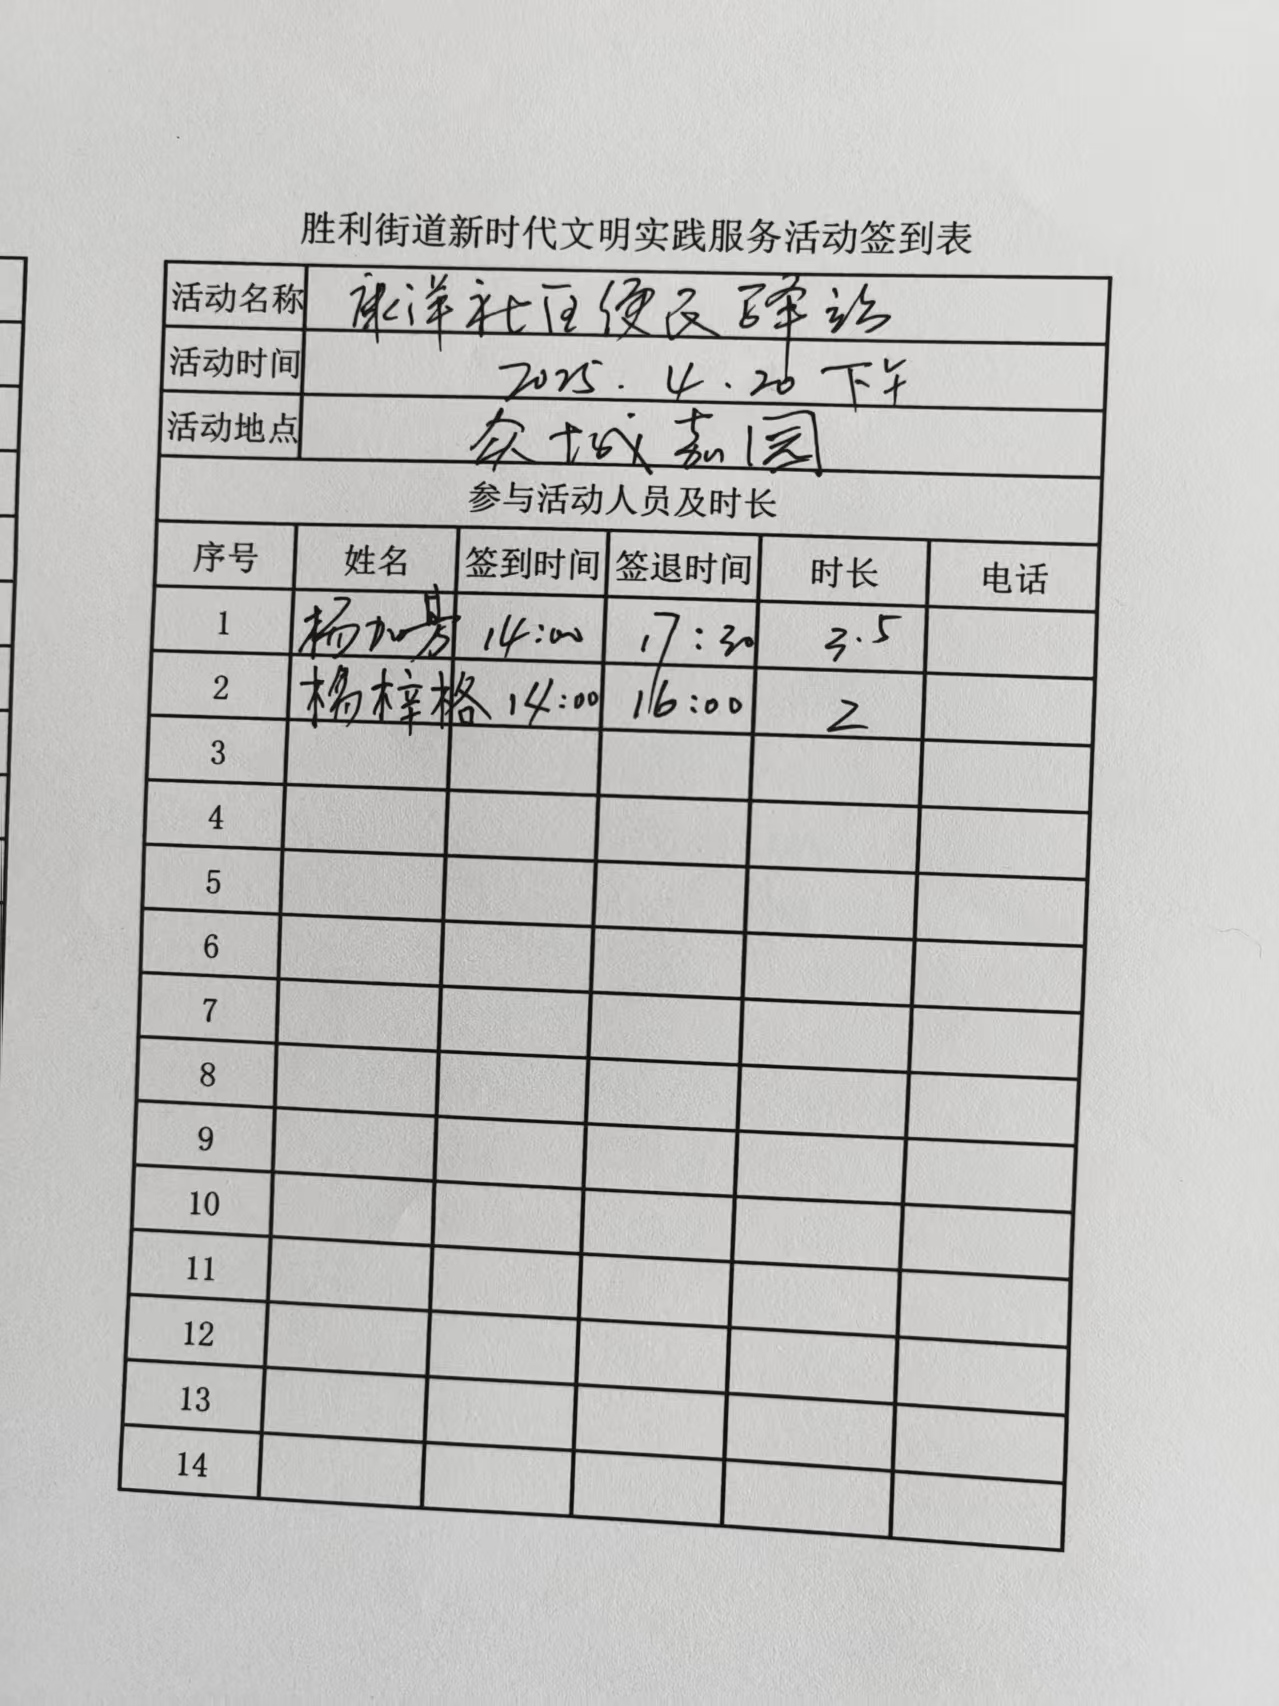 胜利街道新时代文明实践服务活动签到表
活动名称 康洋社区便民驿站
活动时间 2025.4.20 下午
活动地点 众城嘉园
参与活动人员及时长
序号 姓名 签到时间 签退时间 时长 电话
1 杨加 14:00 17:30 3.5
2 杨梓格 14:00 16:00 2
3
4
5
6
7
8
9
10
11
12
13
14